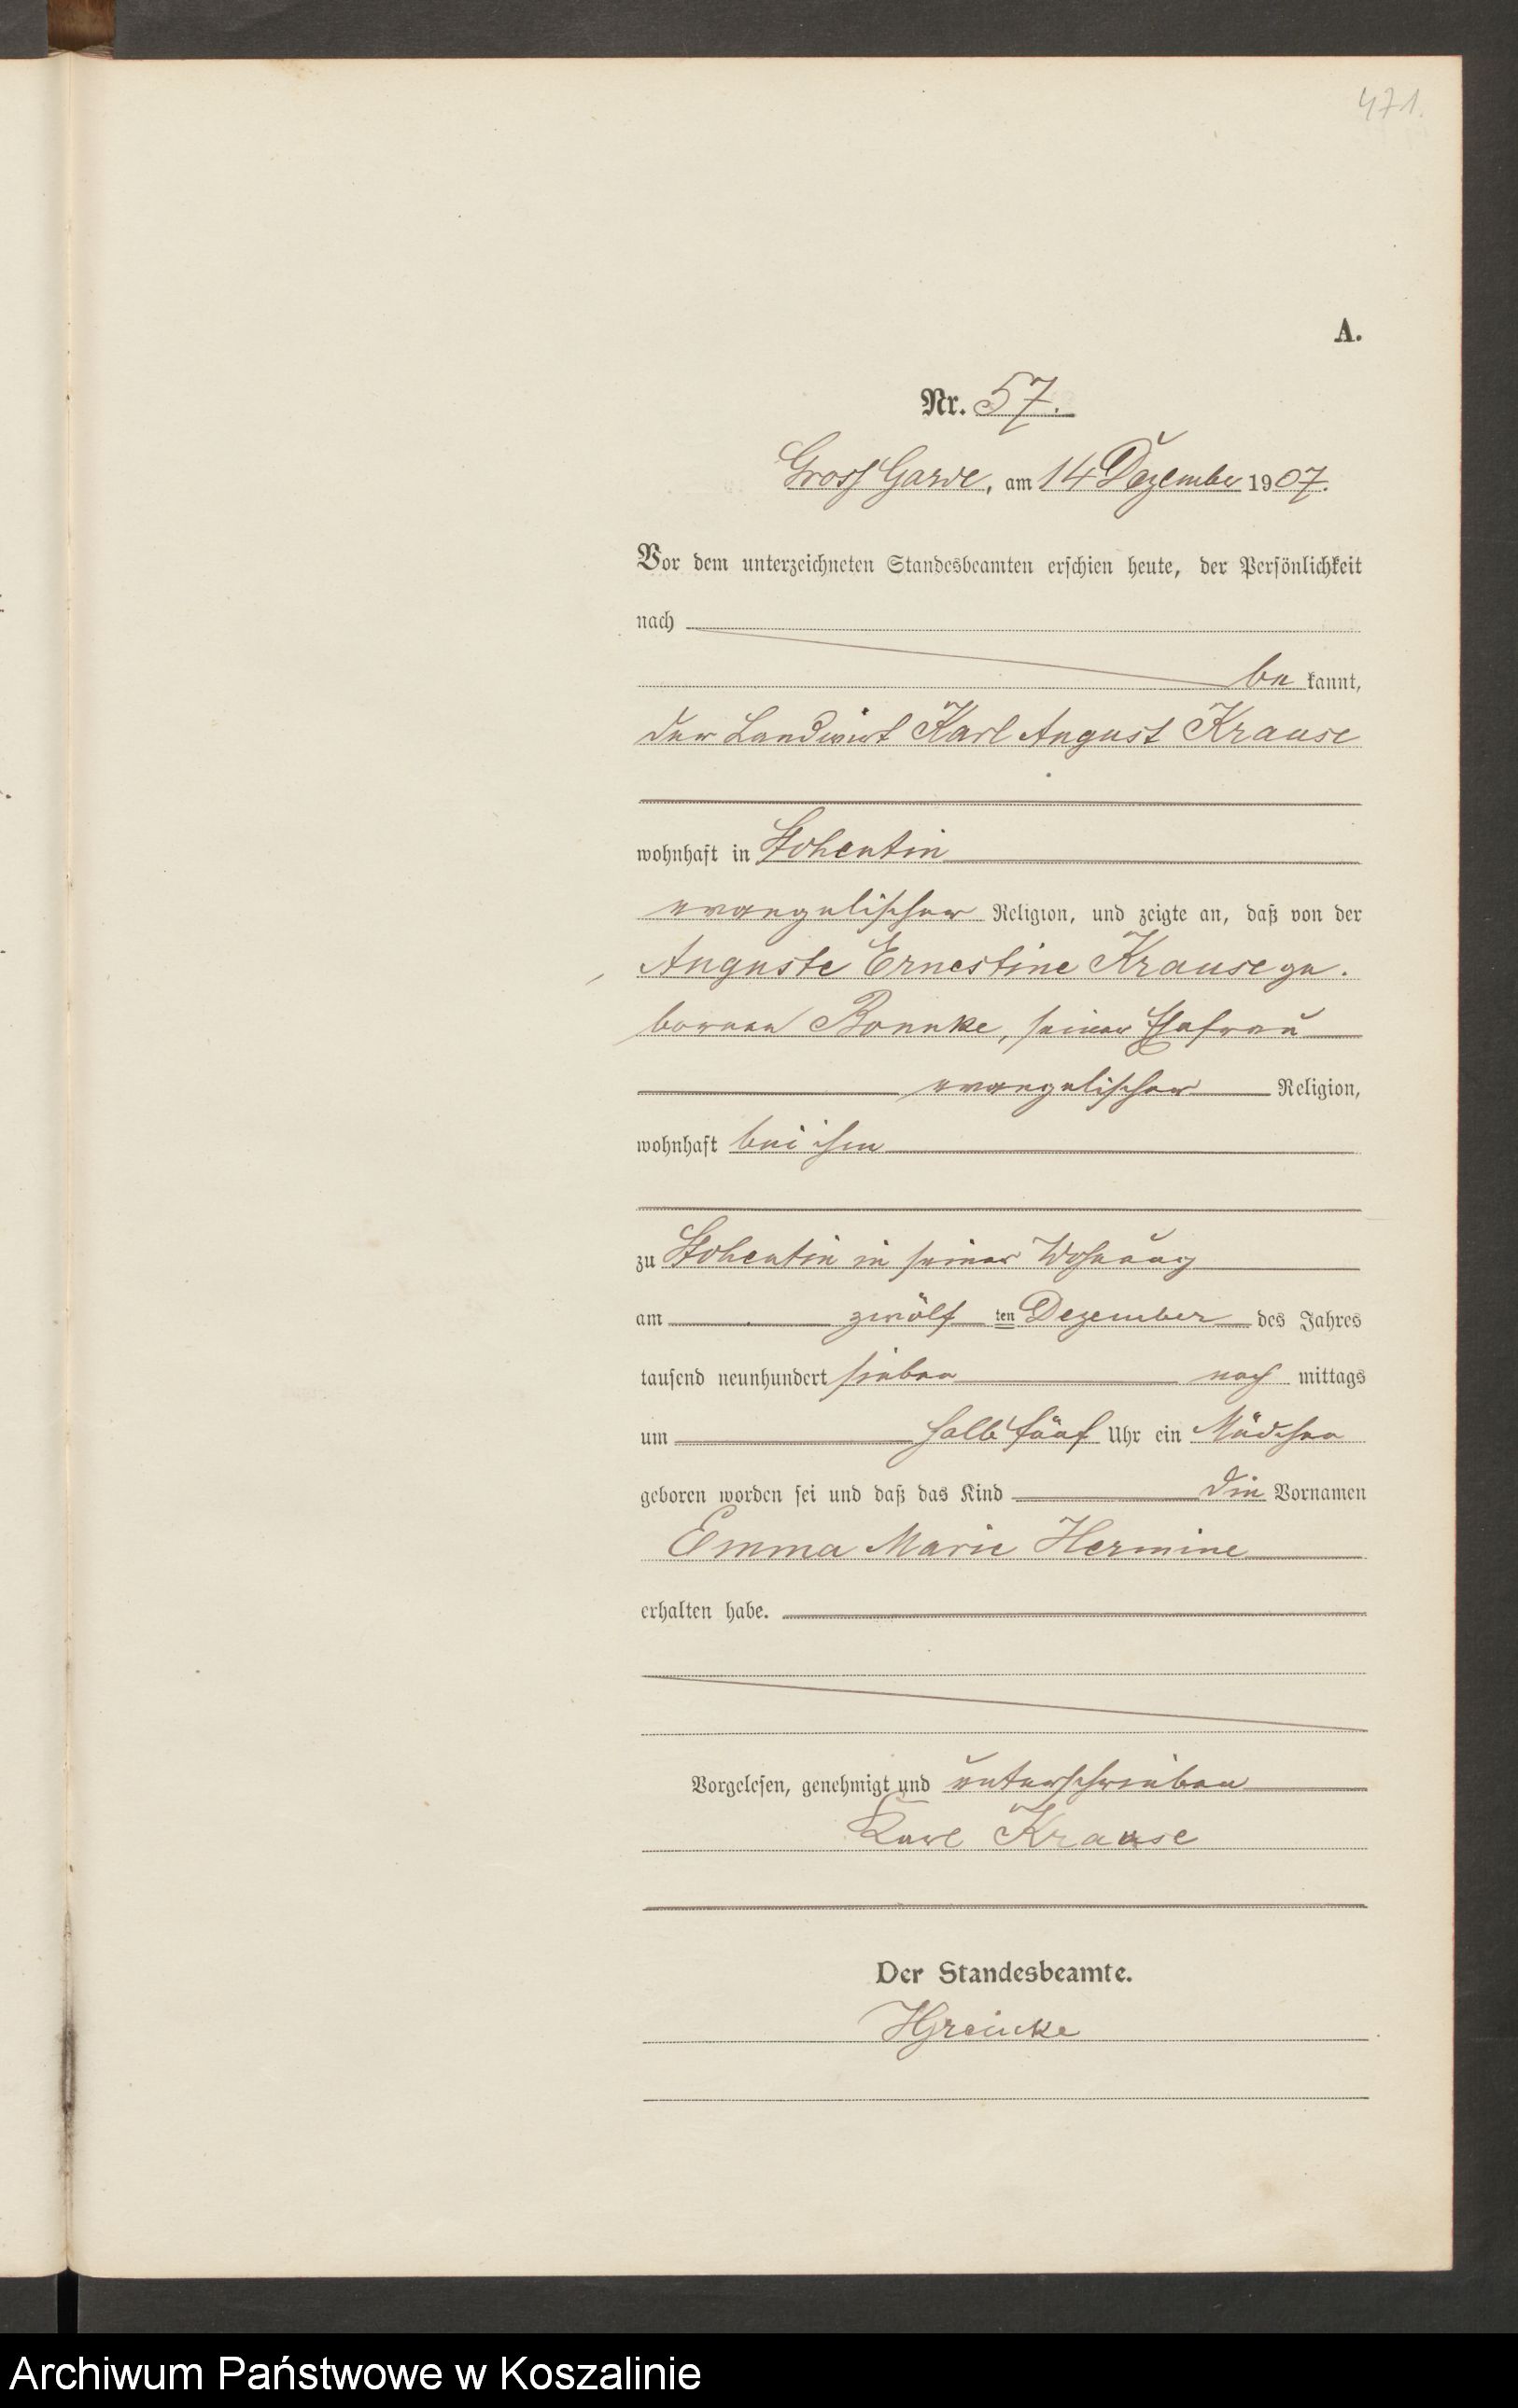 471.
A.
Nr. 57.
Gross Garde, am 14 Dezember 1907.
Vor dem unterzeichneten Standesbeamten erschien heute, der Persönlichkeit
nach
be kannt,
der Landwirt Karl August Krause
wohnhaft in Stohentin
evangelischer Religion, und zeigte an, daß von der
Auguste Ernestine Krause ge.
borenen Bonnke, seiner Ehefrau
evangelischer Religion,
wohnhaft bei ihm
zu Stohentin in seiner Wohnung
am zwölf ten Dezember des Jahres
tausend neunhundert sieben nach mittags
um halb fünf Uhr ein Mädchen
geboren worden sei und daß das Kind die Vornamen
Emma Marie Hermine
erhalten habe.
Vorgelesen, genehmigt und unterschrieben
Karl Krause
Der Standesbeamte.
Archiwum Państwowe w Koszalinie